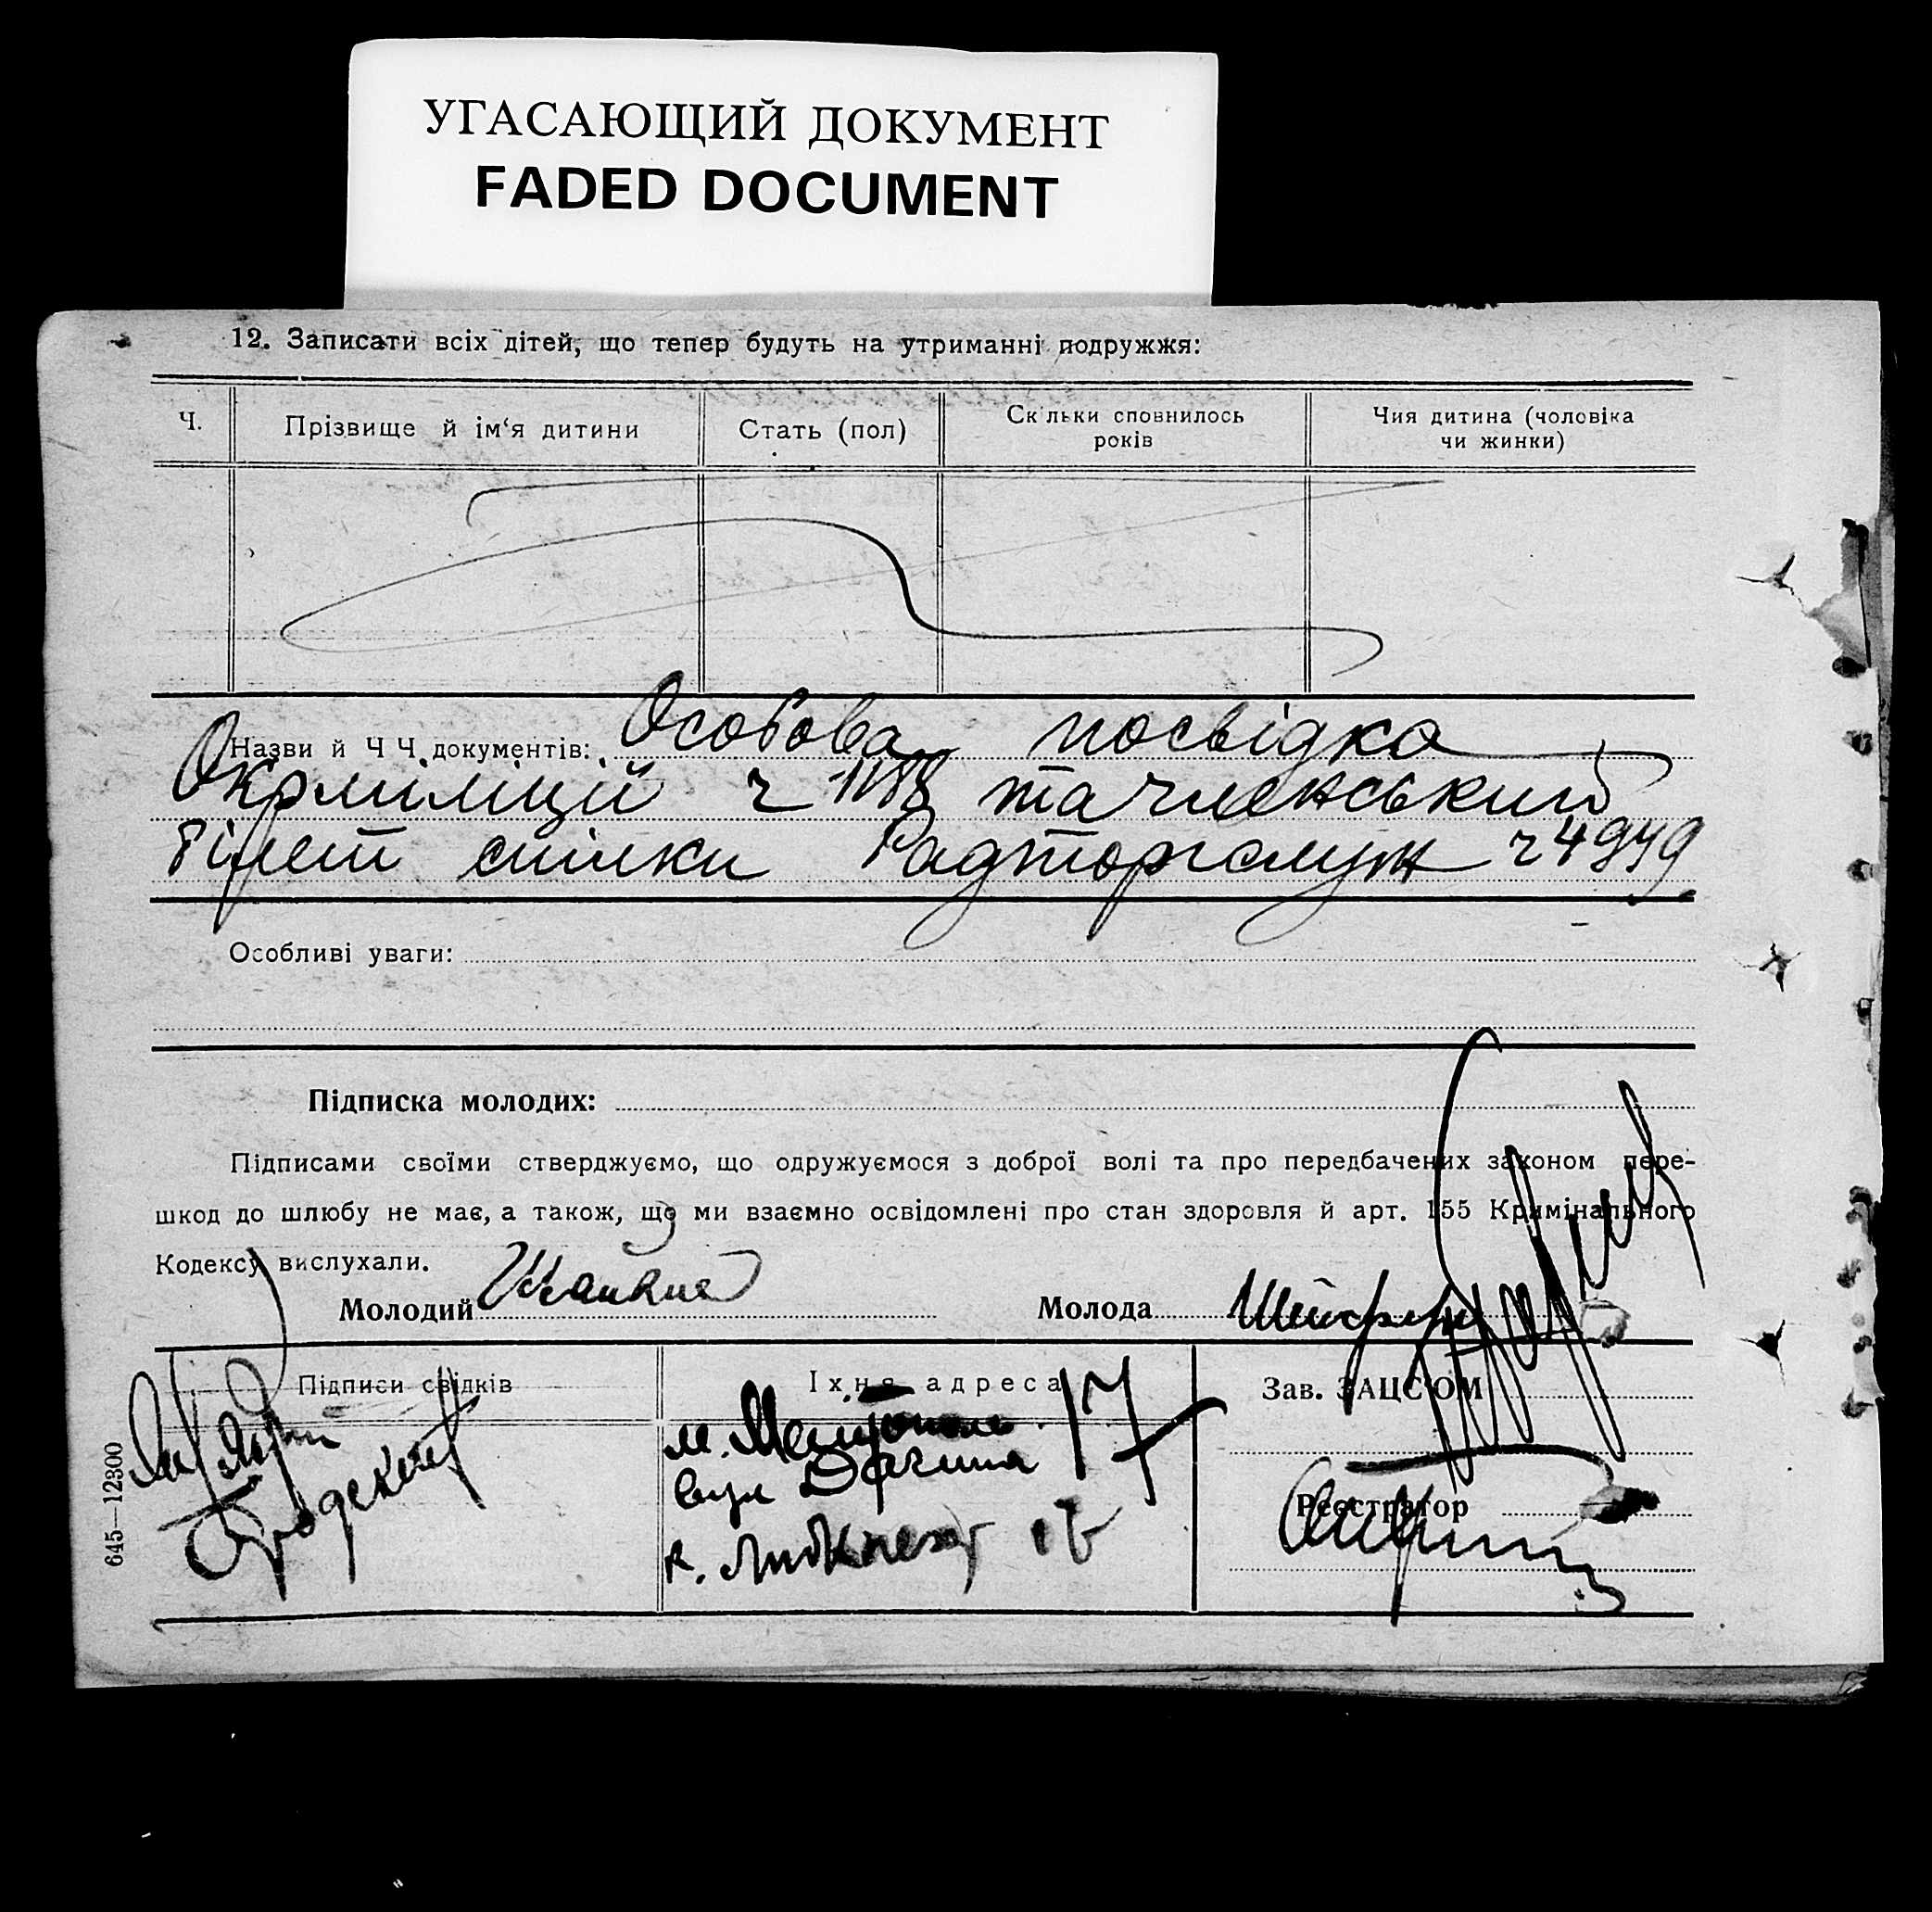 УГАСАЮЩИЙ ДОКУМЕНТ
FADED DOCUMENT
12. Записати всіх дітей, що тепер будуть на утриманні подружжя:
Ч.
Прізвище й ім'я дитини
Стать (пол)
Скільки сповнилось
років
Чия дитина (чоловіка
чи жинки)
Назви й Ч Ч документів: Особова посвідка
Окрміліцій ч та членський
білет спілки Радторгслуж ч 4949
Особливі уваги:
Підписка молодих:
Підписами своїми стверджуємо, що одружуємося з доброї волі та про передбачених законом пере-
шкод до шлюбу не має, а також, що ми взаємно освідомлені про стан здоровля й арт. 155 Кримінального
Кодексу вислухали.
Молодий
Молода
Підписи свідків
Їхня адреса
Зав. ЗАЦС'ОМ
м. 17
вул
Реєстратор
645—12300